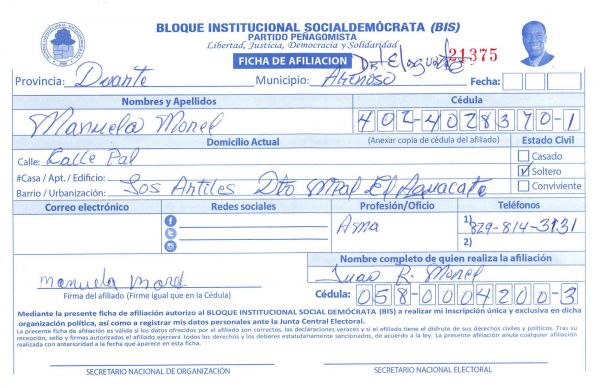 BLOQUE INSTITUCIONAL SOCIALDEMÓCRATA (BIS)
PARTIDO PEÑAGOMISTA
Libertad, Justicia, Democracia y Solidaridad
FICHA DE AFILIACION
21375
Provincia: Duarte Municipio: Arenoso Fecha:
Nombres y Apellidos Cédula
Manuela Morel 402-4028370-1
Domicilio Actual (Anexar copia de cédula del afiliado) Estado Civil
Calle: Calle Pal Casado
#Casa / Apt. / Edificio: Soltero
Barrio / Urbanización: Los Antiles Dto Mpal El Aguacate Conviviente
Correo electrónico Redes sociales Profesión/Oficio Teléfonos
Ama 1) 829-814-3131
2)
Nombre completo de quien realiza la afiliación
Juan R. Morel
manuela morel
Firma del afiliado (Firme igual que en la Cédula) Cédula: 058-0004200-3
Mediante la presente ficha de afiliación autorizo al BLOQUE INSTITUCIONAL SOCIAL DEMÓCRATA (BIS) a realizar mi inscripción única y exclusiva en dicha
organización política, así como a registrar mis datos personales ante la Junta Central Electoral.
La presente ficha de afiliación es válida si los datos ofrecidos por el afiliado son correctos, las declaraciones veraces y si el afiliado tiene el disfrute de sus derechos civiles y políticos. Tras su
recepción, sello y firmas autorizadas el afiliado ejercerá todos los derechos y los deberes estatutariamente consignados, de acuerdo a la ley. La presente afiliación anula cualquier afiliación
realizada con anterioridad a la fecha que aparece en esta ficha.
SECRETARIO NACIONAL DE ORGANIZACIÓN SECRETARIO NACIONAL ELECTORAL